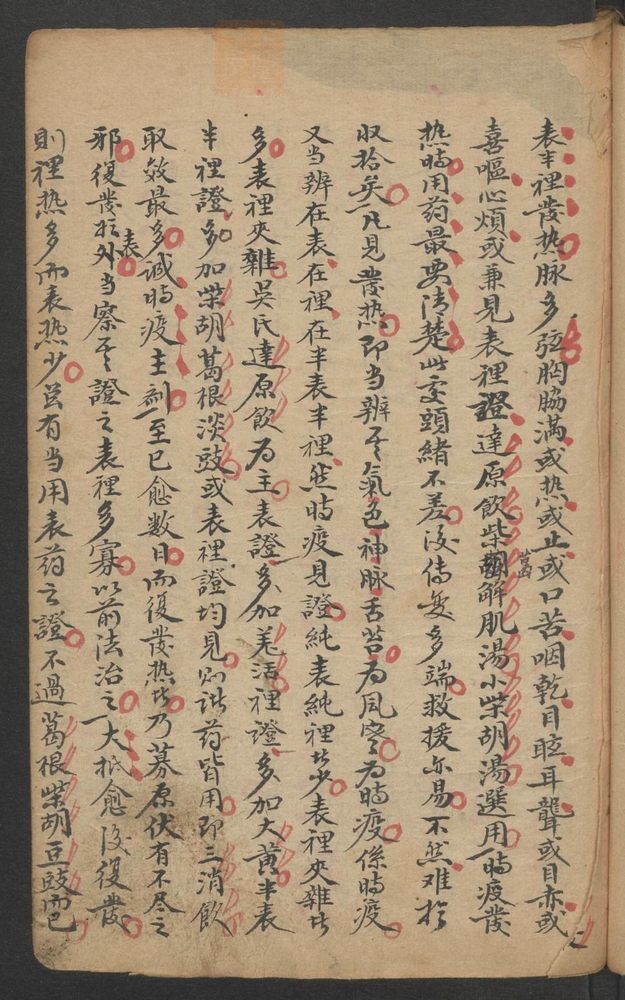 表半裡發热脉多弦胸脇滿或热或止或口苦咽乾目眩耳聾或目赤或
喜嘔心煩或兼見表裡證達原飲柴葛解肌湯小柴胡湯選用一時疫發
热時用药最要清楚此處頭緒不差後傳變多端救援亦易不然难於
收拾矣凡見發热即当辨其氣色神脉舌苔为風寒为時疫係時疫
又当辨在表在裡在半表半裡然時疫見證純表純裡者少表裡夾雜者
多表裡夾雜吴氏達原飲为主表證多加羌活裡證多加大黄半表
半裡證多加柴胡葛根淡豉或表裡證均見则諸药皆用即三消飲
取效最多诚時疫主劑一至已愈数日而復發热者乃募原伏有不尽之
邪復發於外表当察其證之表裡多寡以前法治之一大抵愈後復發
則裡热多而表热少兹有当用表药之證不過葛根柴胡豆豉而已